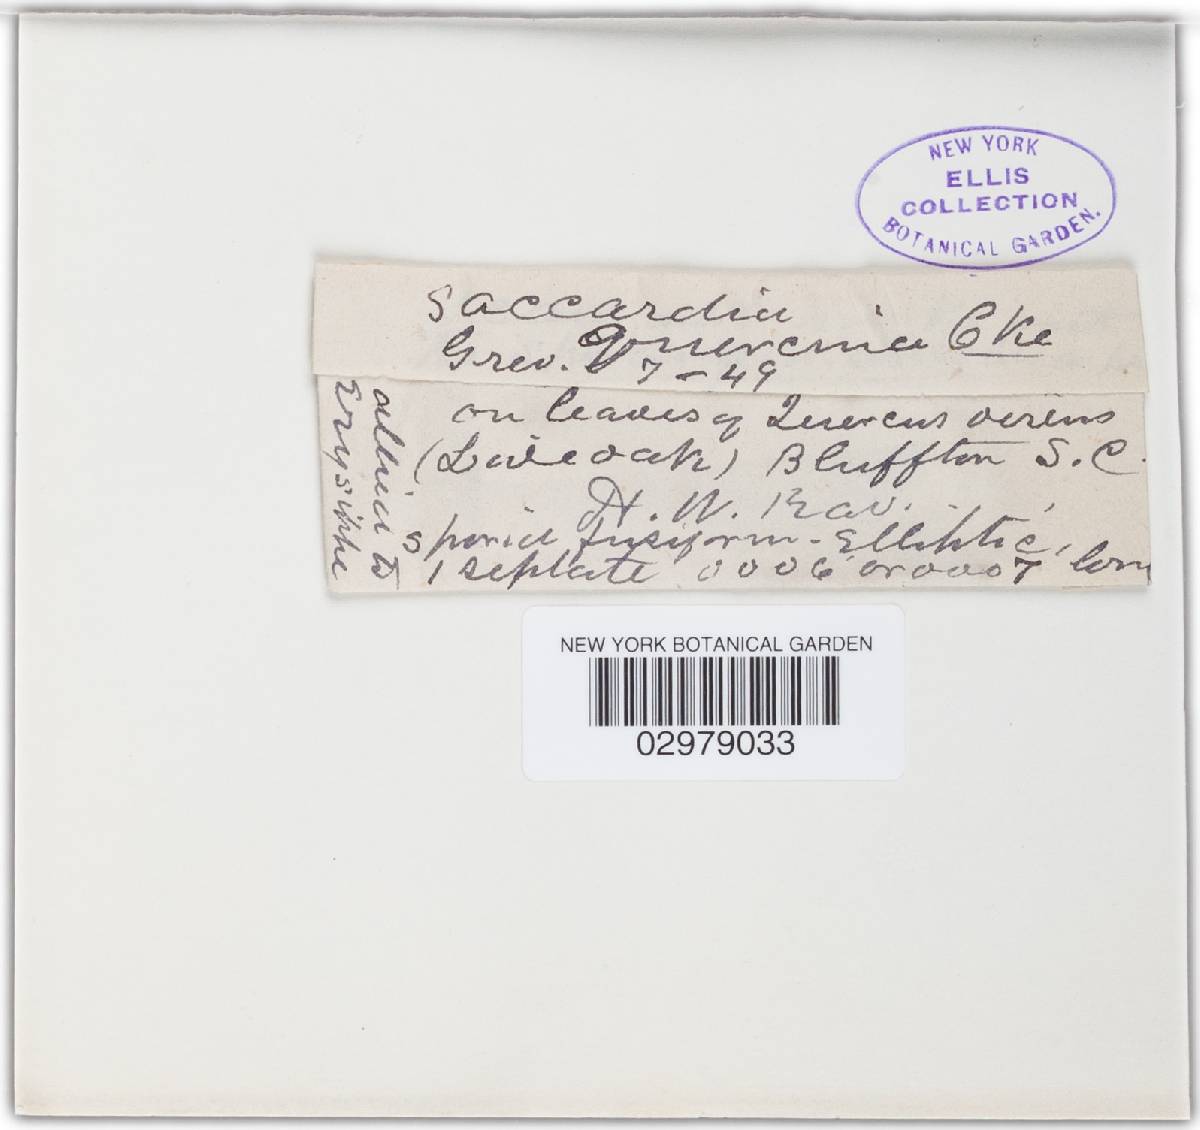 NEW YORK
ELLIS
COLLECTION
BOTANICAL GARDEN.
Saccardia
quercina Cke
Grev. 7-49
on leaves of Quercus virens
(Live oak) Bluffton S.C.
H. W. Rav.
sporid fusiform-elliptic,
1 septate 0006 or 0007 long
allied to
Erysiphe
NEW YORK BOTANICAL GARDEN
02979033